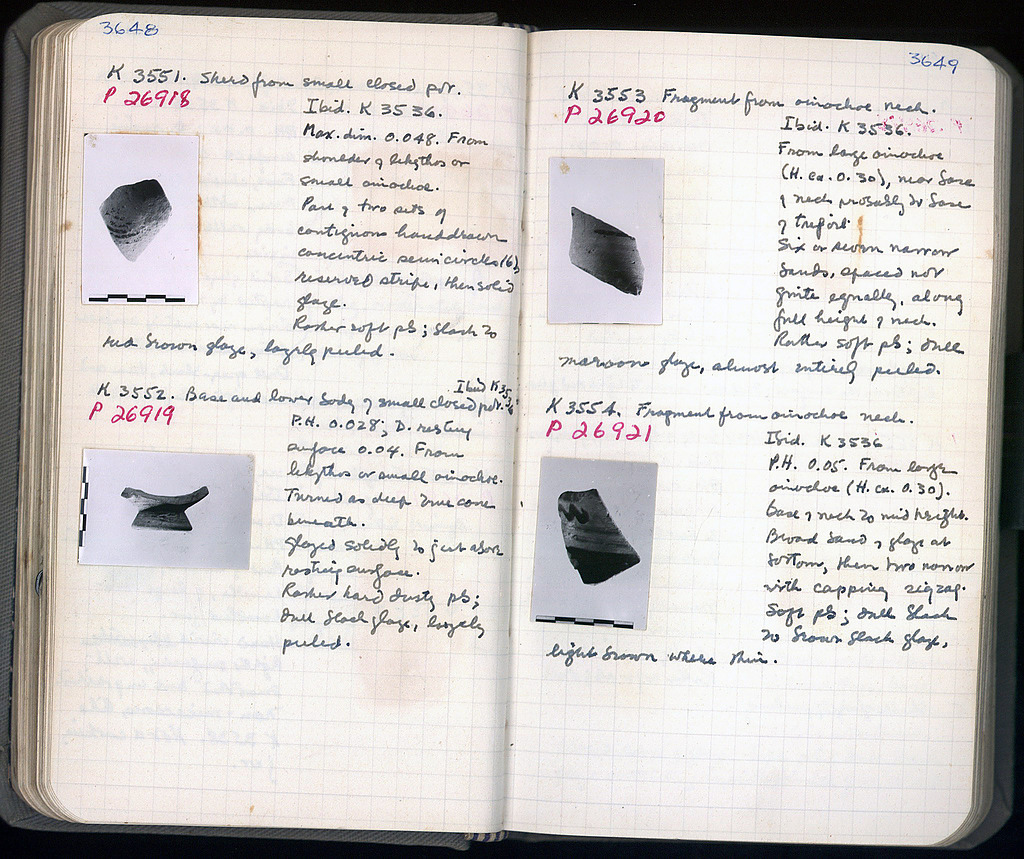 3648
K 3551. Sherd from small closed pot.
P 26918
Ibid. K 3536.
Max. dim. 0.048. From
shoulder of lekythos or
small oinochoe.
Part of two sets of
contiguous handdrawn
concentric semicircles (6),
reserved stripe, then solid
glaze.
Rather soft pb; black to
red brown glaze, largely peeled.
K 3552. Base and lower body of small closed pot. Ibid K 3536
P 26919
P.H. 0.028; D. resting
surface 0.04. From
lekythos or small oinochoe.
Turned as deep true cone
beneath.
Glazed solidly to just above
resting surface.
Rather hard dusty pb;
dull black glaze, largely
peeled.
3649
K 3553 Fragment from oinochoe neck.
P 26920
Ibid. K 3536.
From large oinochoe
(H. ca. 0.30), near base
of neck probably to base
of trefoil.
Six or seven narrow
bands, spaced not
quite equally, along
full height of neck.
Rather soft pb; dull
maroon glaze, almost entirely peeled.
K 3554. Fragment from oinochoe neck.
P 26921
Ibid. K 3536
P.H. 0.05. From large
oinochoe (H. ca. 0.30).
Base of neck to mid height.
Broad band of glaze at
bottom, then two narrow
with capping zigzag.
Soft pb; dull black
to brown black glaze,
light brown where thin.